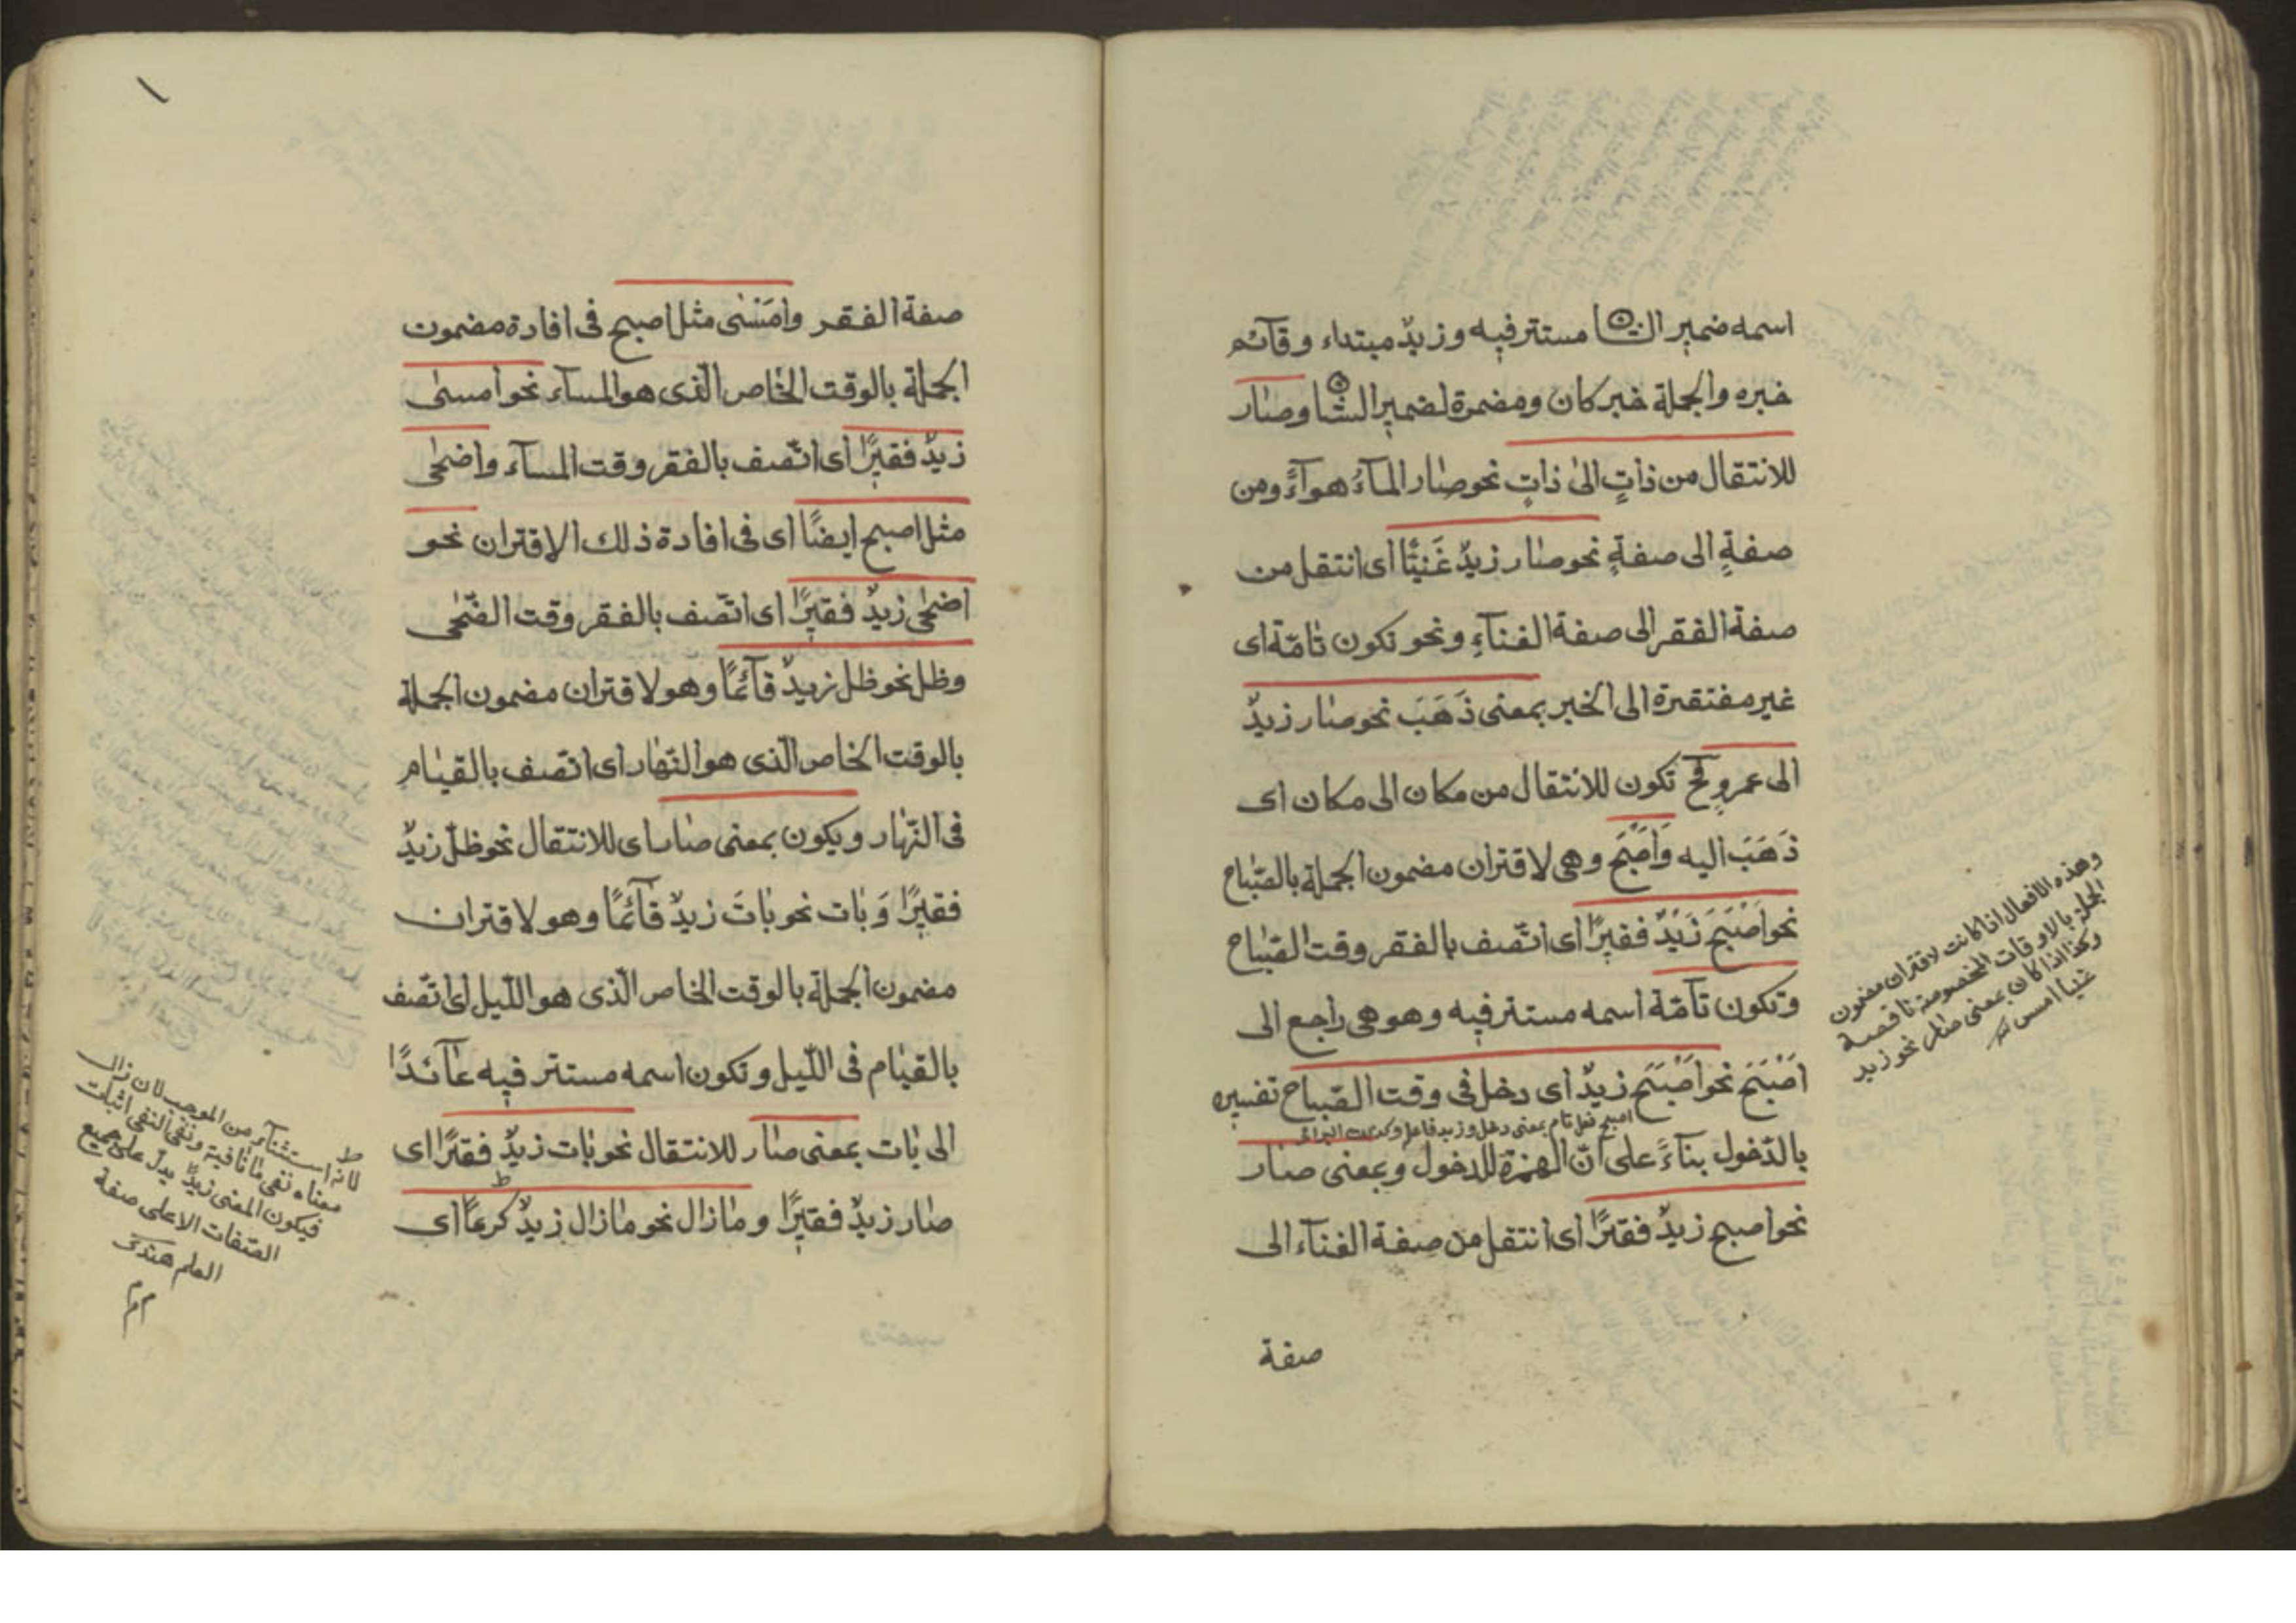 اسمه ضمير الشا مستتر فيه وزيدٌ مبتداء وقآئم
خبره والجملة خبر كان ومضمرة لضمير الشا وصار
للانتقال من ذاتٍ الى ذاتٍ نحو صار المآءُ هوآءً ومن
صفةٍ الى صفةٍ نحو صار زيدٌ غَنيًّا اى انتقل من
صفة الفقر الى صفة الغنآءِ ونحو تكون تامّة اى
غير مفتقرة الى الخبر بمعنى ذَهَبَ نحو صار زيدٌ
الى عمروٍ فح تكون للانتقال من مكان الى مكان اى
ذَهَبَ اليه وَاَصْبَحَ وهى لاقتران مضمون الجملة بالصّباح
نحو اَصْبَحَ زَيْدٌ فقيرًا اى اتّصف بالفقر وقت الصّباح
وتكون تآمّة اسمه مستتر فيه وهو هى راجع الى
اَصْبَحَ نحو اَصْبَحَ زيدٌ اى دخل فى وقت الصّباح تفسيره
اصبح فعل تام بمعنى دخل وزيد فاعل
بالدّخول بنآءً على انّ الهمزة للدخول وبمعنى صار
نحو اصبح زيدٌ فقيرًا اى انتقل من صفة الغنآء الى
صفة
وهذه الافعال اذا كانت لاقتران مضمون
الجملة بالاوقات المخصوصة ناقصة
وكذا اذا كان بمعنى صار نحو زيد
غنيا امس
١
صفة الفقر وامَسْى مثل اصبح فى افادة مضمون
الجملة بالوقت الخاص الّذى هو المسآء نحو امسى
زيدٌ فقيرًا اى اتّصف بالفقر وقت المسآء واضحى
مثل اصبح ايضًا اى فى افادة ذلك الاقتران نحو
اضحى زيدٌ فقيرًا اى اتّصف بالفقر وقت الضّحى
وظل نحو ظل زيدٌ قآئمًا وهو لاقتران مضمون الجملة
بالوقت الخاص الّذى هو النّهار اى اتصف بالقيام
فى النّهار ويكون بمعنى صار اى للانتقال نحو ظلّ زيدٌ
فقيرًا وَبات نحو باتَ زيدٌ قآئمًا وهو لاقتران
مضمون الجملة بالوقت الخاص الّذى هو اللّيل اى اتّصف
بالقيام فى اللّيل وتكون اسمه مستتر فيه عآئدًا
الى بات بمعنى صار للانتقال نحو بات زيدٌ فقيرًا اى
صار زيدٌ فقيرًا وما زال نحو ما زال زيدٌ كرمًا اى
لانه استثنآء من الموجب لان زال
معناه نفى ما نافية ونفى النفى اثبات
فيكون المعنى زيدٌ يدلّ على جميع
الصّفات الا على صفة
العلم هندى